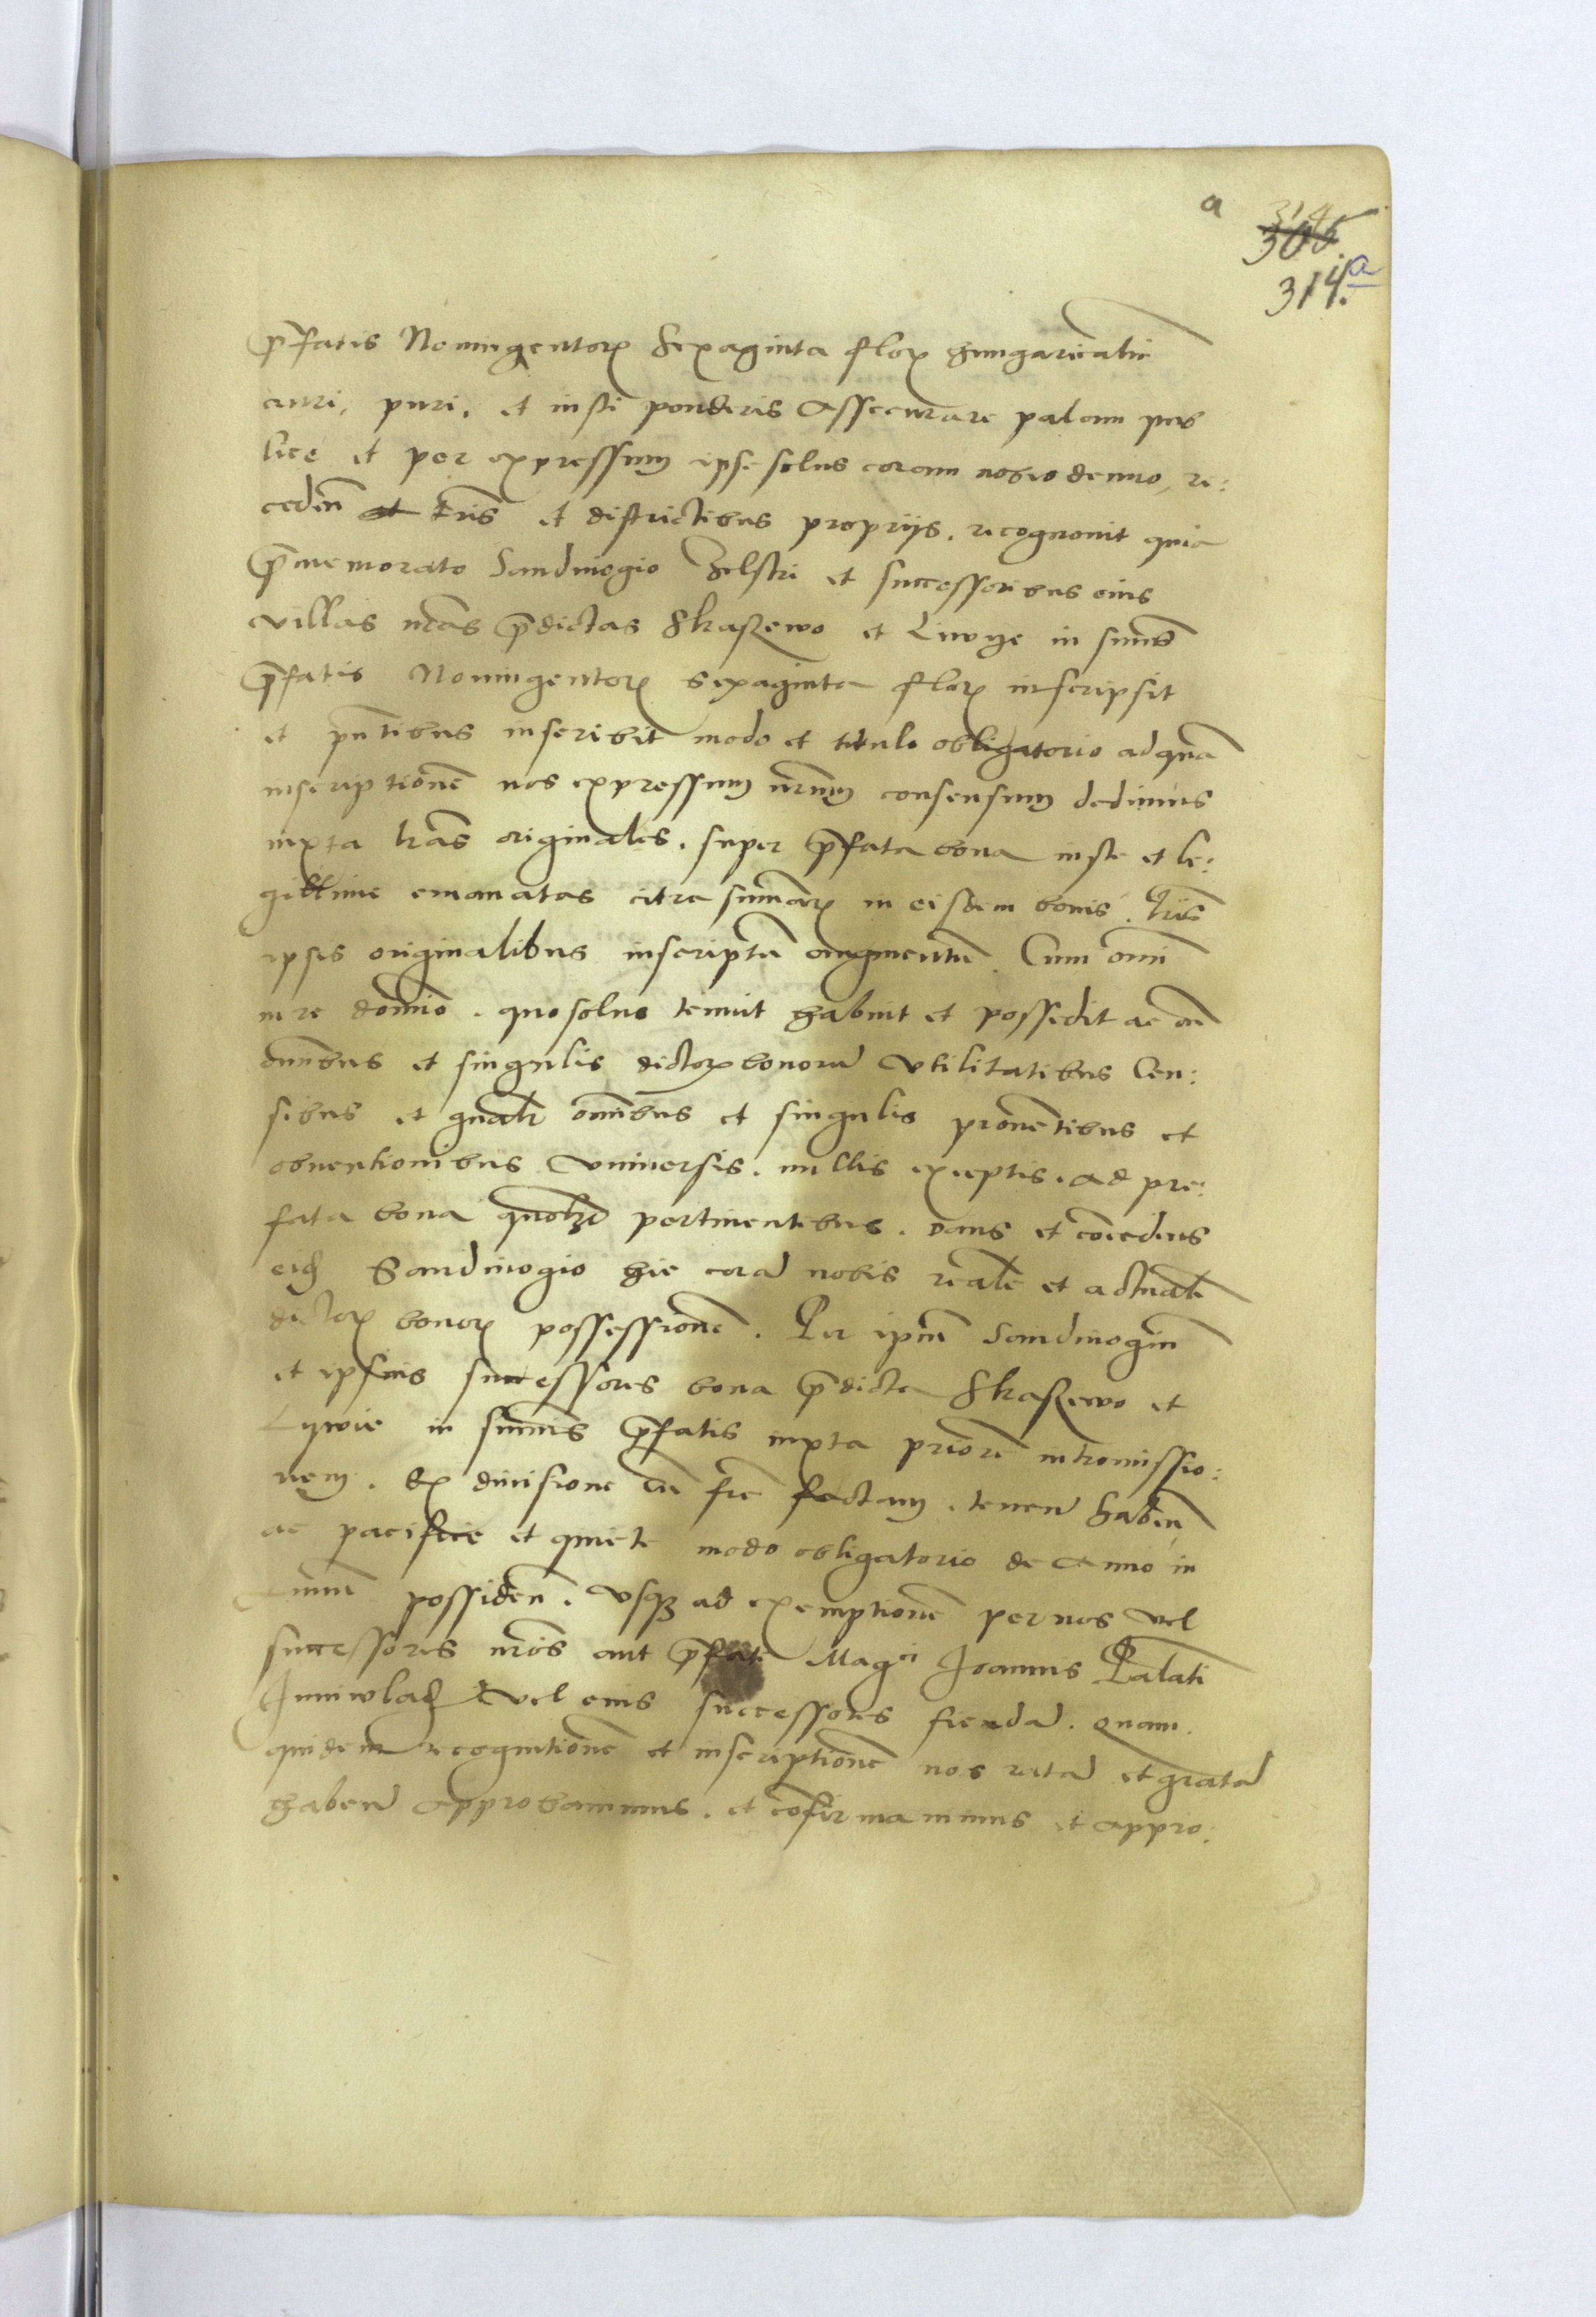 a 314
305
314.a
p̄fatis Noningentorꝝ Sexaginta florꝝ hungaricaliū
auri, puri, et iusti ponderis Assecurare palam pub
lice et per expressum ipse solus coram nobis denuo, re:
ceden̄ et t̄ris et districtibus proprijs. recognouit quia
p̄memorato Sandiuogio et successoribus eius
villas nr̄as p̄dictas Skaszewo et Liwye in sum̄is
p̄fatis Noningentorꝝ sexaginta florꝝ inscripsit
et pn̄tibus inscribit modo et titulo obligatorio ad quā
inscriptionē nos expressum nr̄um consensum dedimus
iuxta l̄ras originales. super p̄fata bona iuste et le:
gittime emanatas citra sum̄arꝝ in eisdem bonis l̄ris
ipsis originalibus inscriptā augmentū. Cum om̄i
iure domīo. quo solus tenuit habuit et possedit ac cū
om̄ibus et singulis dictorꝝ bonorū vtilitatibus Cen:
sibus et gn̄alr̄ om̄ibus et singulis prouentibus et
obuentionibus vniuersis. nullis exceptis. ad pre:
fata bona quolꝫ pertinentibus. dans et cōcedens
eidꝫ Sandiuogio hic corā nobis realē et actualē
dictorꝝ bonorꝝ possessionē. Per ipm̄ Sandiuogiū
et ipsius successores bona p̄dicta Skaszewo et
Lywie in sum̄is p̄fatis iuxta priorē intromissio:
nem. Ex diuisione cū fr̄e factam. tenen̄ haben̄
ac pacifice et quiete modo obligatorio de Anno in
Annū possiden̄. vsqꝫ ad exemptionē per nos vel
successores nr̄os aut p̄fatū Mag̅ci Joannis Palati
Juniwladꝫ vel eius successores fiendā. quam.
quidem recognitionē et inscriptionē nos ratā et gratā
haben̄ approbauimus. et cōfirmauimus et appro: